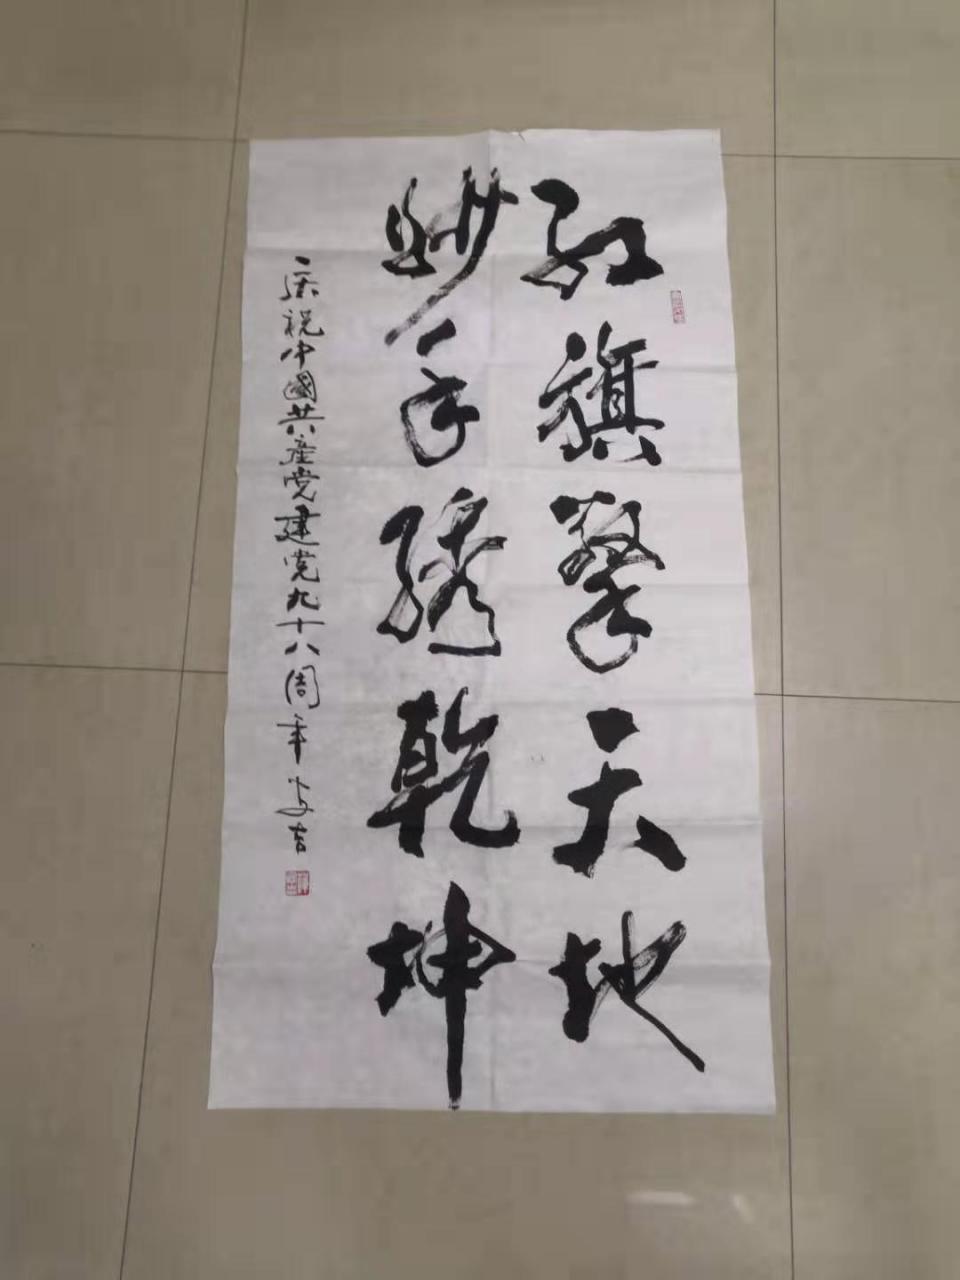 红旗擎天地
妙手绣乾坤
庆祝中國共産党建党九十八周年